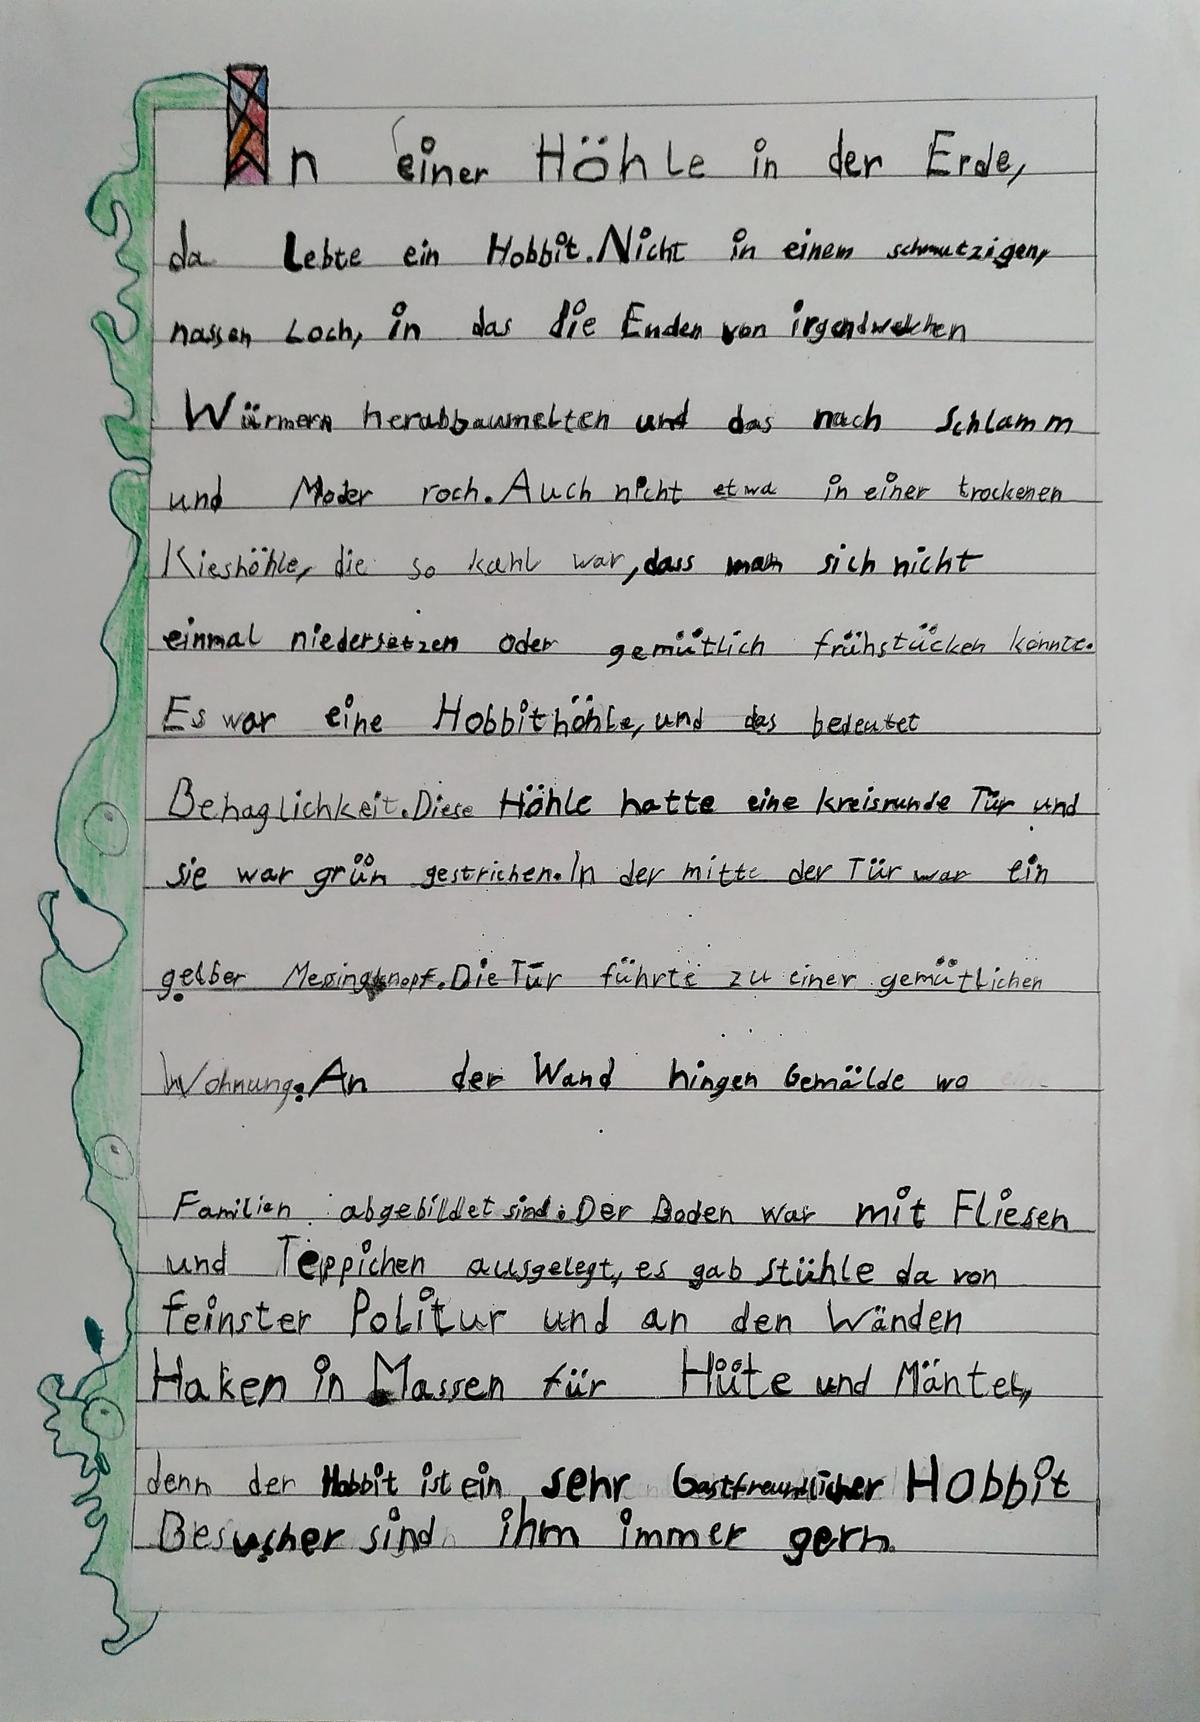 In einer Höhle in der Erde,
da Lebte ein Hobbit. Nicht in einem schmutzigen,
nassen Loch, in das die Enden von irgendwelchen
Würmern herabbaumelten und das nach Schlamm
und Moder roch. Auch nicht etwa in einer trockenen
Kieshöhle, die so kahl war, dass man sich nicht
einmal niedersetzen oder gemütlich frühstücken konnte.
Es war eine Hobbithöhle, und das bedeutet
Behaglichkeit. Diese Höhle hatte eine kreisrunde Tür und
sie war grün gestrichen. In der mitte der Tür war ein
gelber Messingknopf. Die Tür führte zu einer gemütlichen
Wohnung. An der Wand hingen Gemälde wo
Familien abgebildet sind. Der Boden war mit Fliesen
und Teppichen ausgelegt, es gab stühle da von
feinster Politur und an den Wänden
Haken in Massen für Hüte und Mäntel,
denn der Hobbit ist ein sehr Gastfreundlicher Hobbit
Besucher sind ihm immer gern.